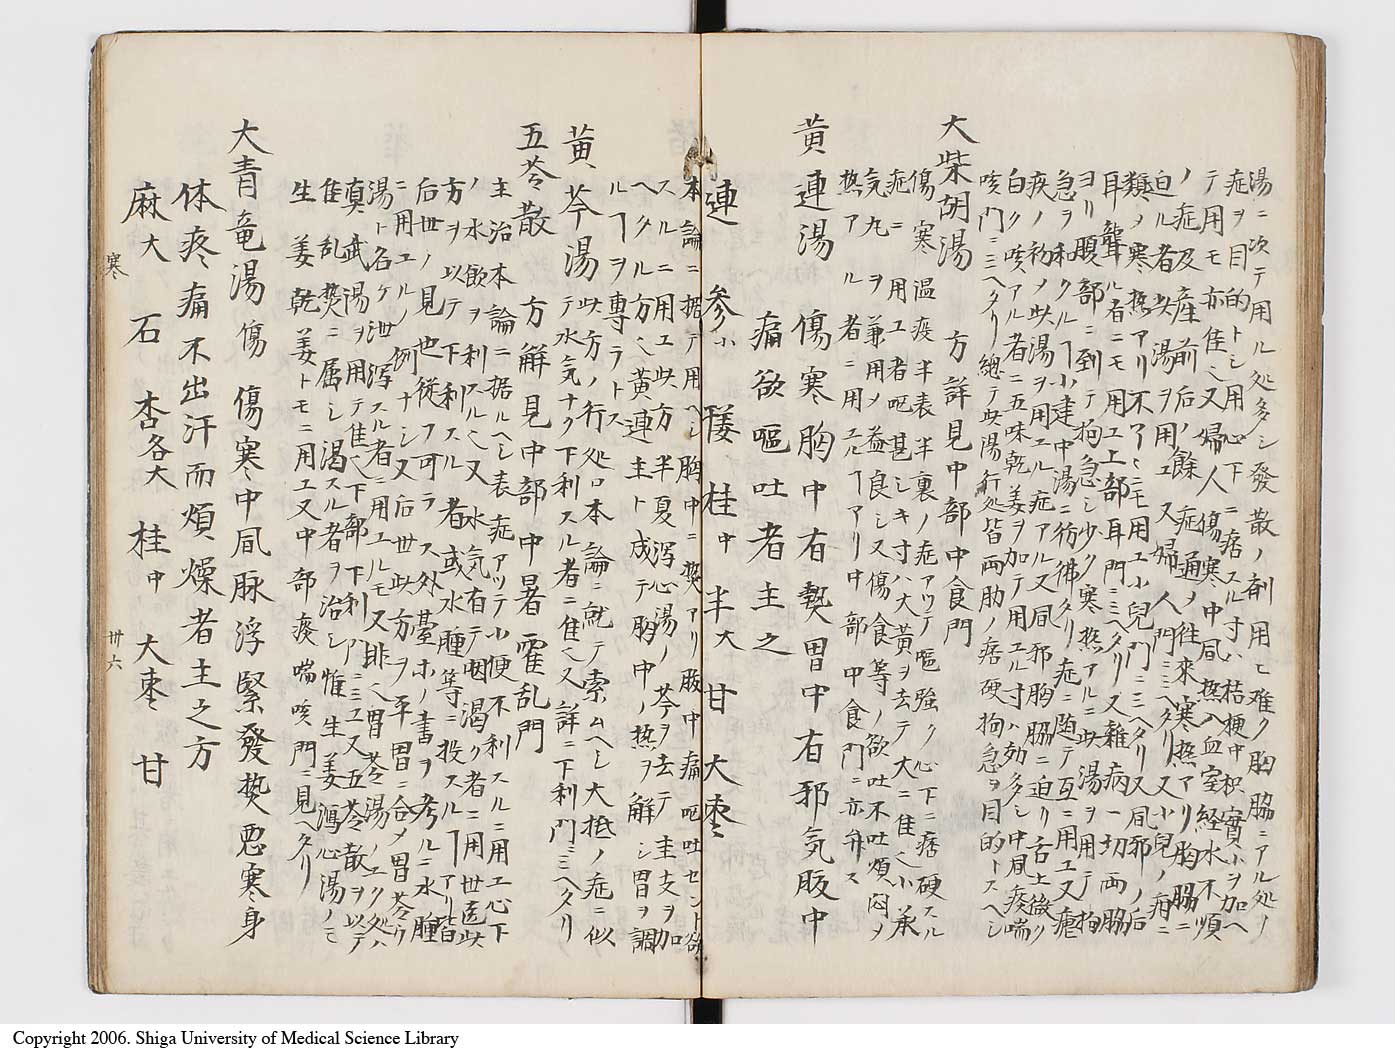 湯ニ次テ用ル処多シ發散ノ剤用ヒ难ク胸脇ニアル処ノ
症ヲ目的トシ用心下ニ痞スル寸ハ桔梗中枳實小ヲ加ヘ
テ用モ亦佳〆又婦人傷寒中風热入血室経水不順
ノ症及産前后ノ餘症通ノ往来寒热アリ胸脇ニ
迫ル者此湯ヲ用ユ又婦人門ニミヘタリ又小兒ノ
類ノ寒热アリ不了ミモ用ユ小兒門ニミヘタリ又風邪ノ后
耳聾ル者ニモ用ユ上部耳門ニミヘタリ又雜病一切両脇
ヨリ腹部ニ到テ拘急シ少ク寒热アルニ此湯ヲ用テ拘
急ヲ和クルヿ小建中湯ニ彷彿タリ症ニ随テ互ニ用ユ又瘧
疾ノ初ノ此湯ヲ用ユル症アル又風邪胸脇ニ迫リ舌上微ク
白ク咳アル者ニ五味乾姜ヲ加テ用ユル寸ハ効多シ中風痰喘
咳門ニミヘタリ總テ此湯行処皆両肋ノ痞硬拘急ヲ目的トスヘシ
大柴胡湯 方詳見中部中食門
傷寒温疫半表半裏ノ症アツテ嘔強ク心下ニ痞硬スル
症ニ用ユ者呕甚シキ寸ハ大黄ヲ去テ大ニ佳〆小承
気丸ヲ兼用ノ益良シ又傷食等ノ欲吐不吐煩悶ヲ
热アル者ニ用ユルヿアリ中部中食門ニ亦弁ス
黄連湯 傷寒胸中有熱胃中有邪気腹中
痛欲嘔吐者主之
連 參小 姜 桂中 半大 甘 大棗
本論ニ据テ用ヘシ胸中ニ热アリ腹中痛呕吐セント欲
スルニ用ユ此方半夏瀉心湯ノ芩ヲ去テ圭支ヲ加
ヘタル方〆黄連主ト成テ胸中ノ热ヲ解シ胃ヲ調
ルヿヲ專ラトス
黄芩湯 此方ノ行処ロ本論ニ就テ索ムヘシ大抵ノ症ニ似
テ水気ナク下利スル者ニ佳〆又詳ニ下利門ニミヘタリ
五苓散 方解見中部中暑霍乱門
主治本論ニ据ルヘシ表症アツテ小便不利スルニ用ユ心下
ノ水飲ヲ利スル〆又水気有テ咽渇ク者ニ用世医此
方ヲ以テ下利スル者或水腫等ニ投スルヿアリ皆
后世ノ見也従フ可ラス外臺ホノ書ヲ考ルニ水腫
ニ用ユルノ例ナシ又后世此方ヲ平胃ニ合メ胃苓
湯ト名ケ泄瀉スル者ニ用ユルモ又非〆胃苓湯ノユク処ハ
真武湯ヲ用テ佳〆下部下利門ニミユ又五苓散ヲ以テ
隺乱热ニ属シ渇スル者ヲ治シ惟生姜瀉心湯ノモ
生姜乾姜トモニ用ユ又中部痰喘咳門ニ見ヘタリ
大青竜湯 傷寒中風脉浮緊發热悪寒身
体疼痛不出汗而煩燥者主之方
麻大 石 杏各大 桂中 大棗 甘
寒 卅六
Copyright 2006. Shiga University of Medical Science Library